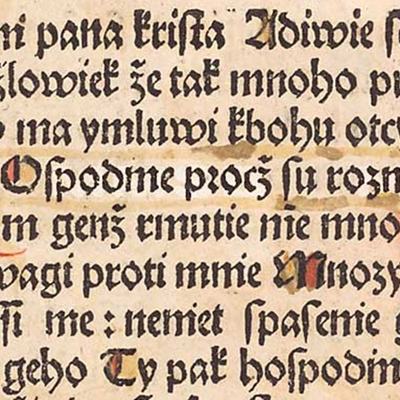 ni pana krista Adiwie s
zlowiek že tak mnoho p
ma ymluwi kbohu otc
Ospodine procž su rozm
m genž rmutie nie mno
wagi proti mnie Mnozy
si me : neniet spasenie g
geho Ty pak hospodin